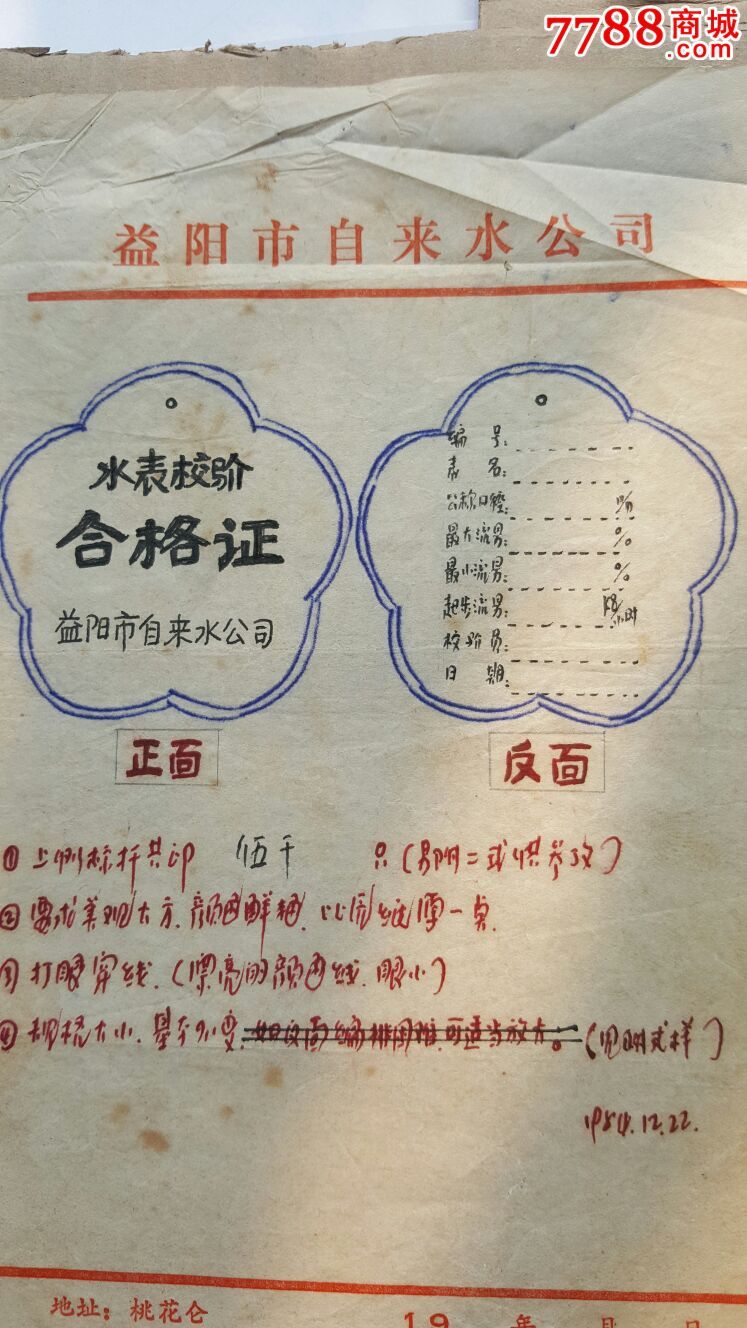 7788商城
.com
益阳市自来水公司
水表校验
合格证
益阳市自来水公司
正面
编号:
表名:
公称口径: m/m
最大流另: %
最小流另: %
起步流另: 小时
校验员:
日期:
反面
① 上侧标扦共印 伍千 只(另附二式供参考)
② 要求美观大方,颜色鲜艳,比原纸厚一点.
③ 打眼穿线.(漂亮的颜色线.眼小)
④ 规格大小.基本不变.如反面编排困难,可适当放大。(见附式样)
1984.12.22.
地址:桃花仑
19 年 月 日